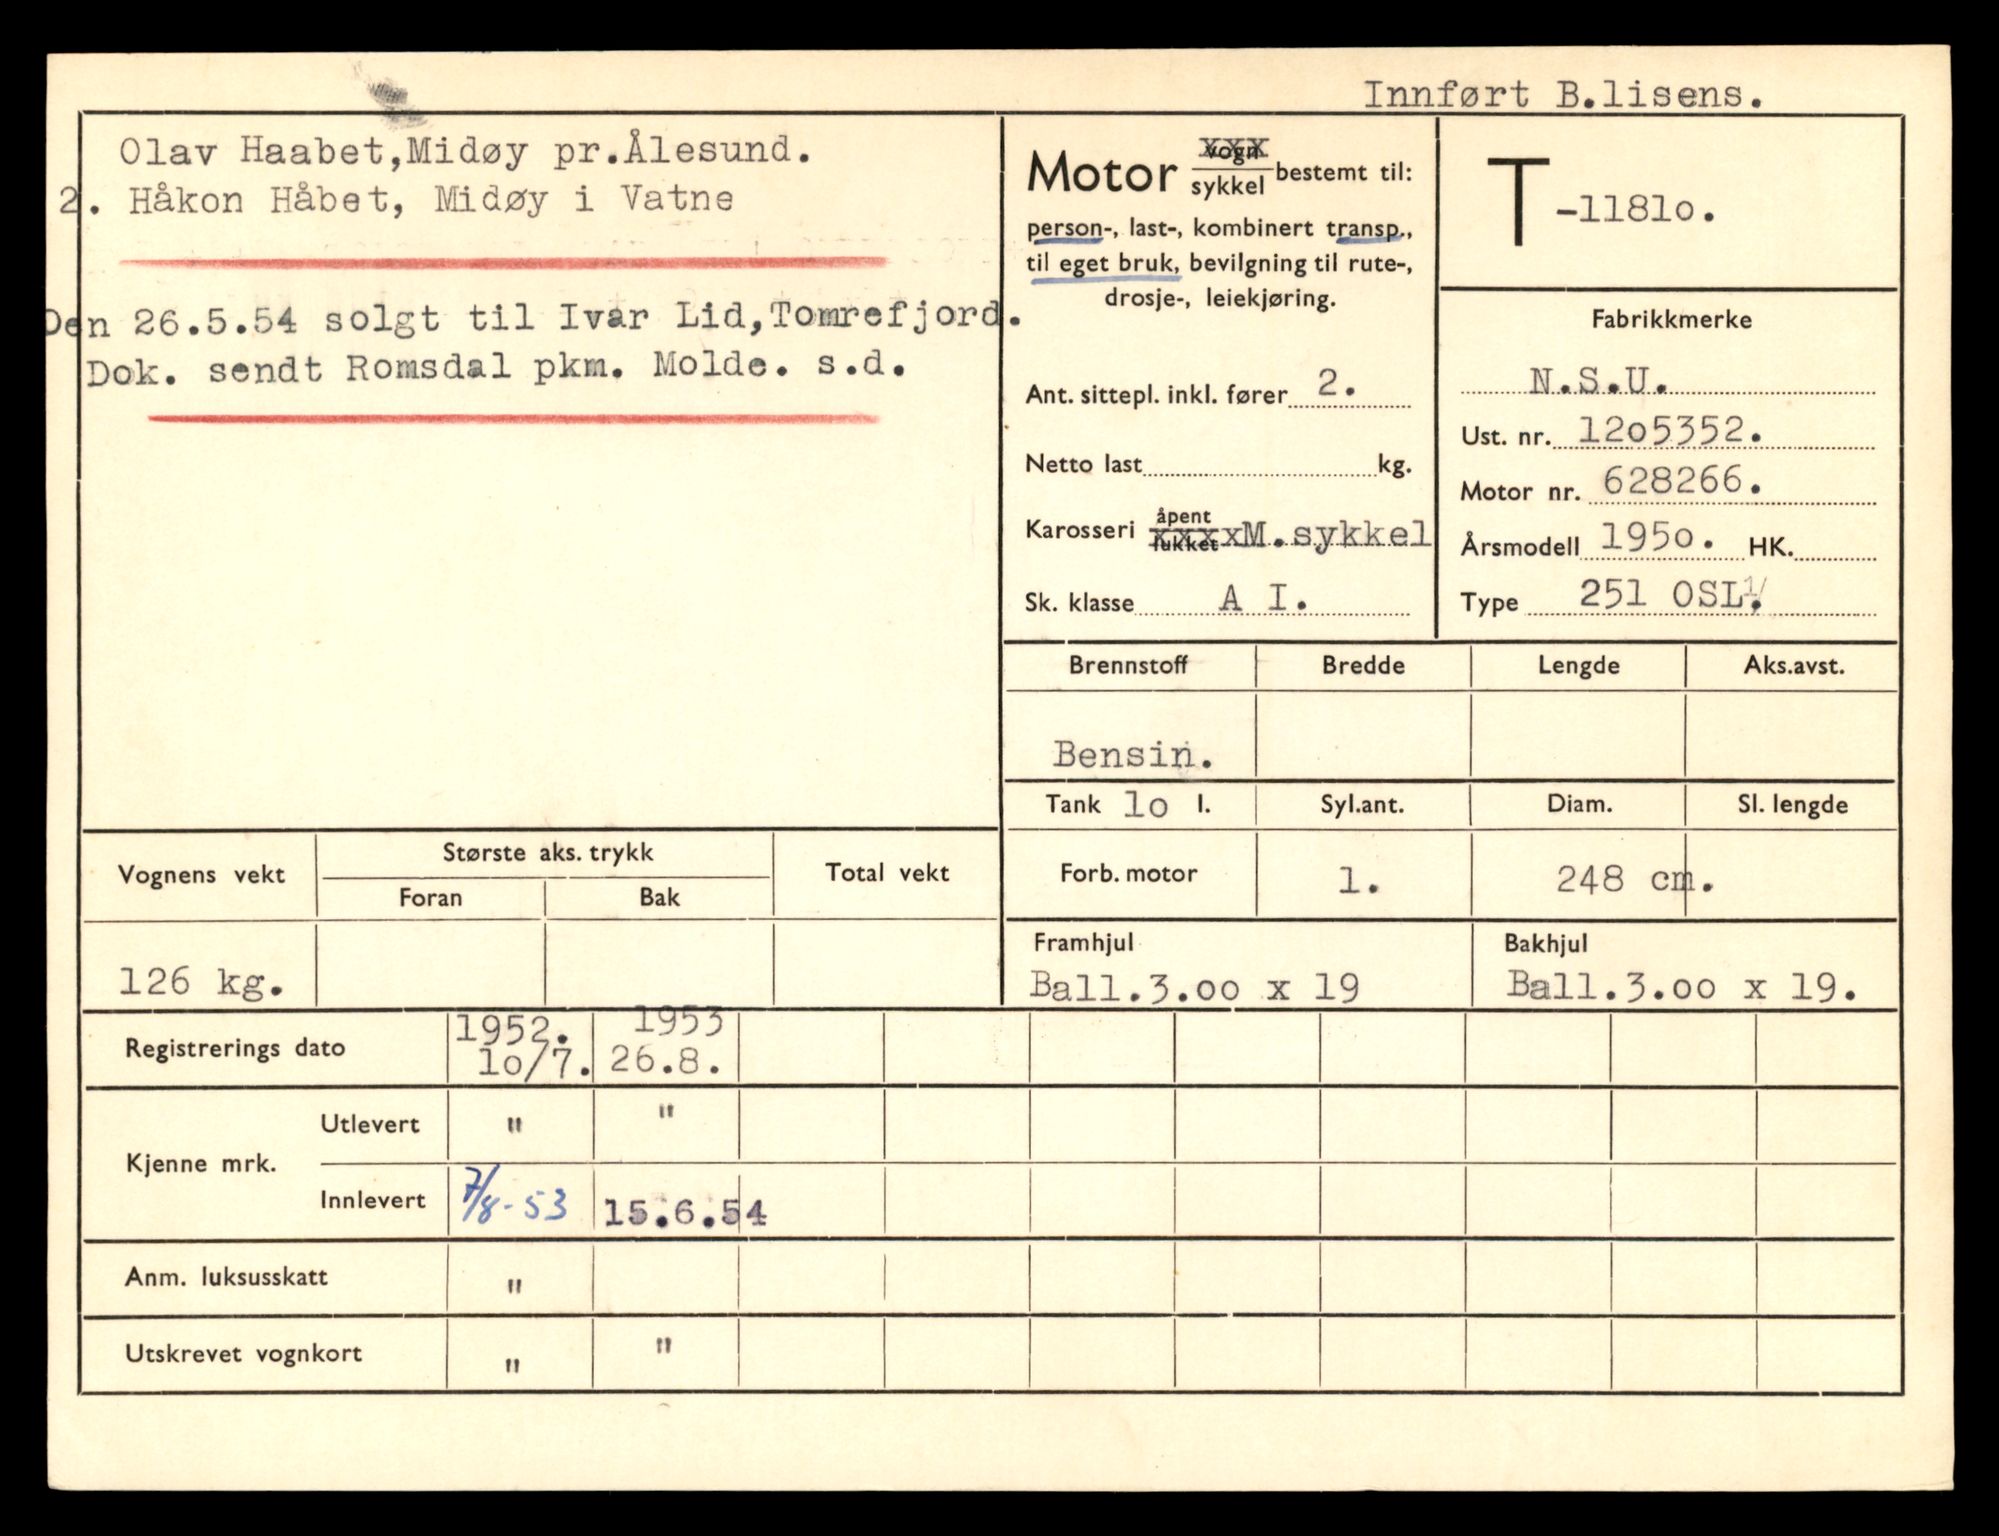 Innført B.lisens.
Olav Haabet,Midøy pr.Ålesund.
2. Håkon Håbet, Midøy i Vatne
Den 26.5.54 solgt til Ivar Lid,Tomrefjord.
Dok. sendt Romsdal pkm. Molde. s.d.
Motor vogn xxx
sykkel bestemt til:
person-, last-, kombinert transp.,
til eget bruk, bevilgning til rute-,
drosje-, leiekjøring.
Ant. sittepl. inkl. fører 2.
Netto last kg.
Karosseri åpent
lukket xxxxM.sykkel
Sk. klasse A I.
T -1181o.
Fabrikkmerke
N.S.U.
Ust. nr. 12o5352.
Motor nr. 628266.
Årsmodell 195o. HK.
Type 251 OSL.1/
Brennstoff Bredde Lengde Aks.avst.
Bensin.
Tank 1o l. Syl.ant. Diam. Sl. lengde
Forb. motor 1. 248 cm.
Framhjul Bakhjul
Ball.3.oo x 19 Ball.3.oo x 19.
Vognens vekt Største aks. trykk Total vekt
Foran Bak
126 kg.
Registrerings dato 1952. 1953
1o/7. 26.8.
Kjenne mrk. Utlevert " "
Innlevert 7/8-53 15.6.54
Anm. luksusskatt "
Utskrevet vognkort " "